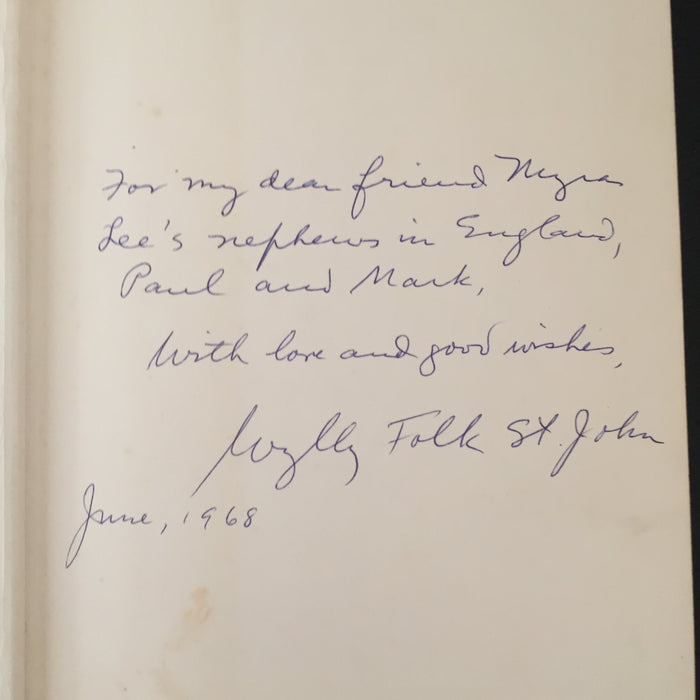 For my dear friend Myra
Lee's nephews in England,
Paul and Mark,
With love and good wishes,
Wylly Folk St. John
June, 1968